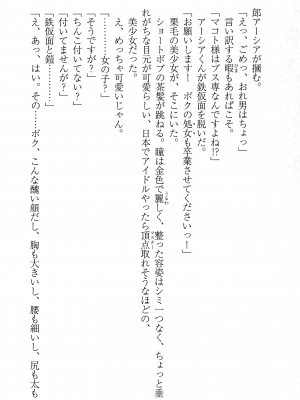 郎アーシアが掴む。
「えっ、ごめっ、おれ男はちょっ」
言い訳する暇もあればこそ。
「マコト様はブス専なんですよね!?」
アーシアくんが鉄仮面を脱いだ。
「お願いします！　ボクの処女も卒業させてくださいっ！」
栗毛の美少女が、そこにいた。
ショートボブの茶髪が跳ねる。瞳は金色で麗しく、整った容姿はシミ一つなく、ちょっと垂
れがちな目元が可愛らしい、日本でアイドルやったら頂点取れそうなほどの、
美少女だった。
え、めっちゃ可愛いじゃん。
「……女の子？」
「そうですが？」
「ちんこ付いてない？」
「付いてませんが？」
「鉄仮面と鎧……」
「え、あっ、はい。その……ボク、こんな醜い顔だし、胸も大きいし、腰も細いし、尻も太も